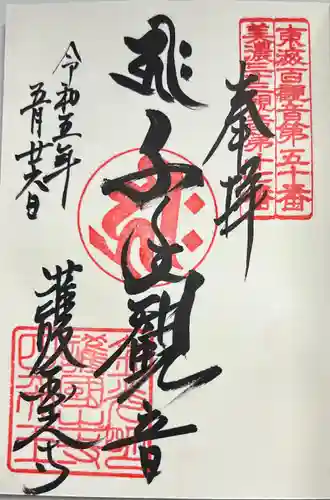 東海百観音第五十番
美濃三十三観音第十七番
奉拝
千手觀音
令和五年
五月廿六日
護国之寺